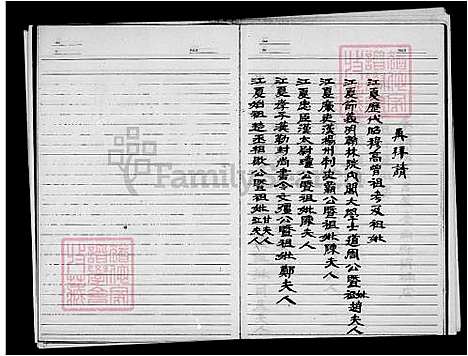 再拜請
江夏歷代昭穆高曾祖考及祖妣
江夏師義明翰林院內閣大學士道周公暨祖妣趙夫人
江夏廉吏漢楊州刺史霸公暨祖妣陳夫人
江夏忠臣漢太尉瓊公暨祖妣陳夫人
江夏孝子漢勅封尚書令文彊公暨祖妣鄭夫人
江夏始祖楚丞相歇公暨祖妣夫人
FamilySearch